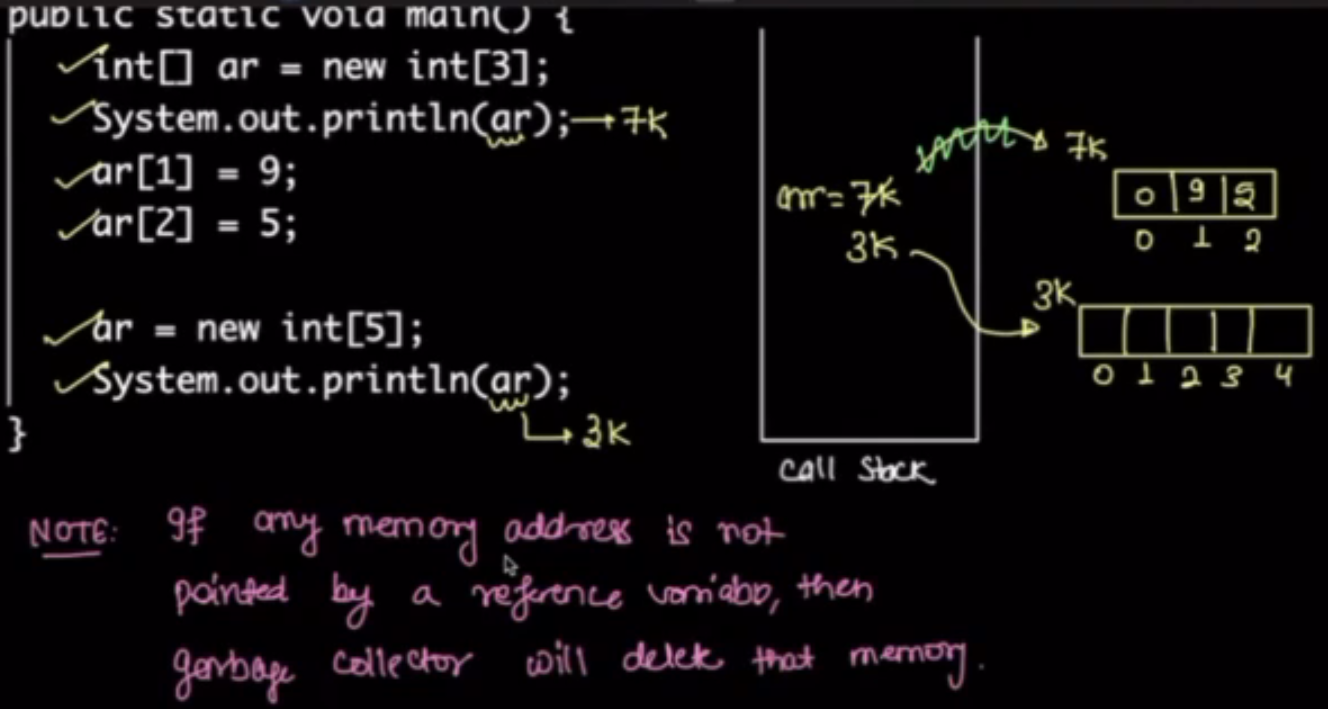 public static void main() {
int[] ar = new int[3];
System.out.println(ar); → 7K
ar[1] = 9;
ar[2] = 5;
ar = new int[5];
System.out.println(ar);
→ 3K
}
7K
ar = 7K
0 9 5
0 1 2
3K
3K
0 1 2 3 4
Call Stack
NOTE: If any memory address is not
pointed by a reference variable, then
garbage collector will delete that memory.